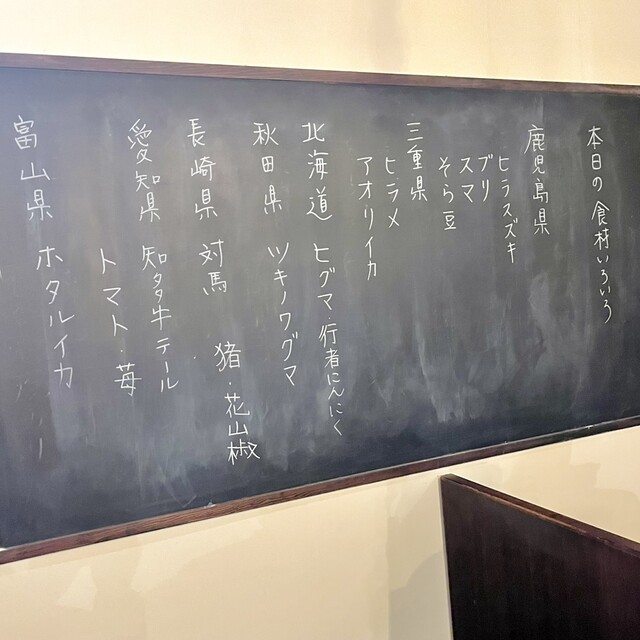 本日の食材いろいろ
鹿児島県
ヒラスズキ
ブリ
スマ
そら豆
三重県
ヒラメ
アオリイカ
北海道 ヒグマ・行者にんにく
秋田県 ツキノワグマ
長崎県 対馬 猪・花山椒
愛知県 知多牛テール
トマト・苺
富山県 ホタルイカ